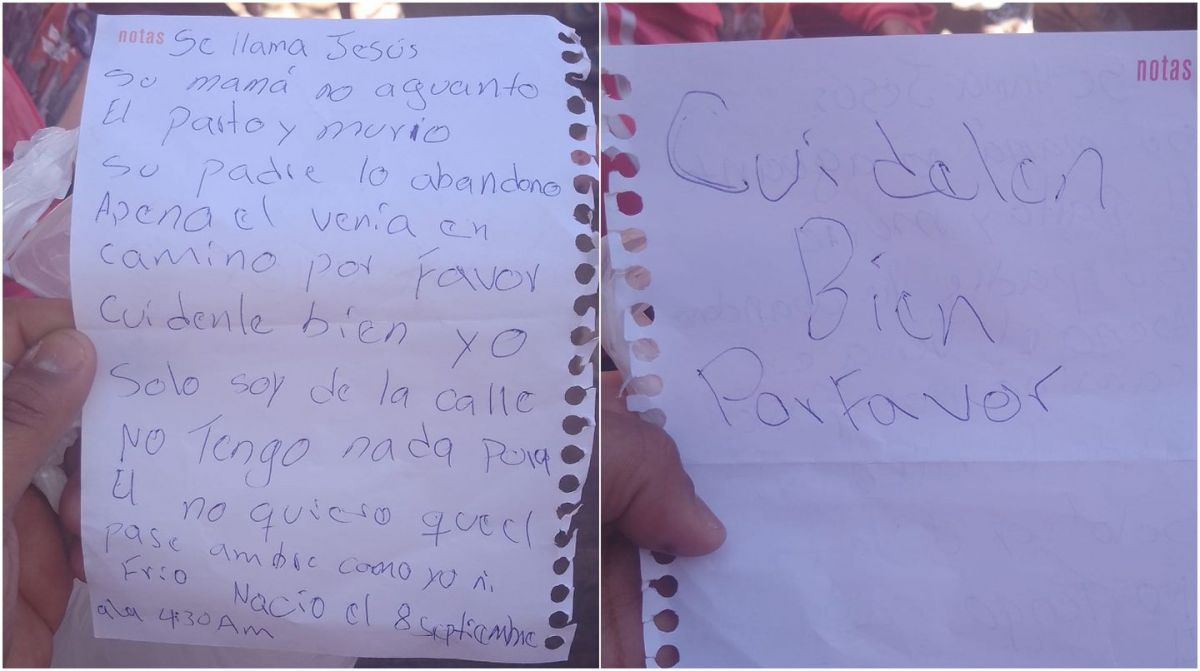 notas
Se llama Jesús
su mamá no aguanto
El parto y murio
su padre lo abandono
Apena el venía en
camino por favor
Cuidenle bien yo
Solo soy de la calle
No Tengo nada para
El no quiero que el
pase ambre como yo ni
Frio Nacio el 8 septiembre
ala 4:30 Am
notas
Cuidelen
Bien
Por Favor